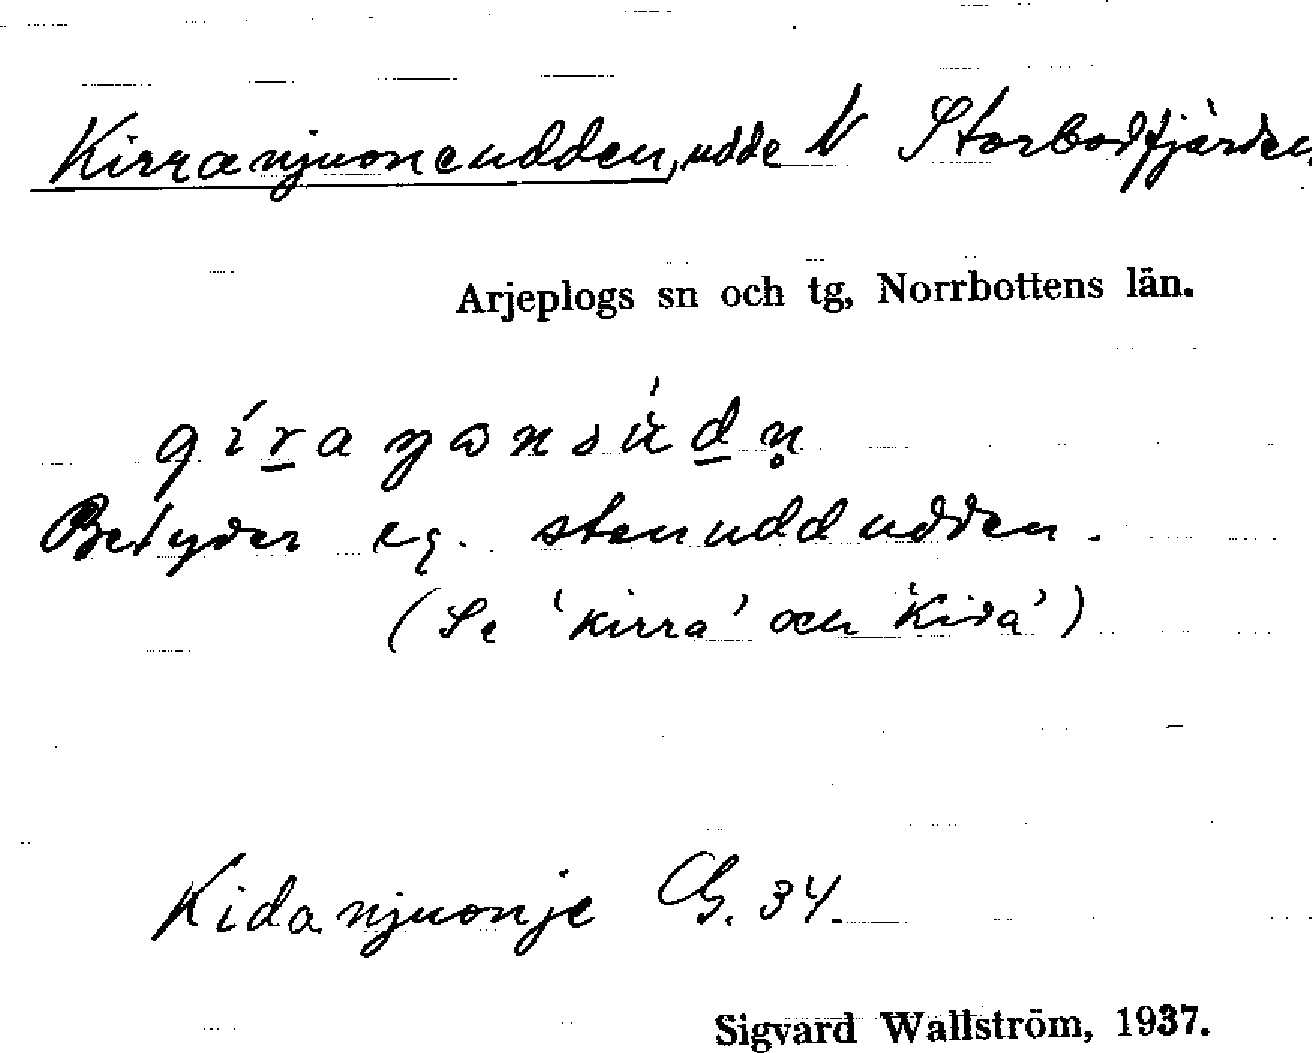 Kirranjuoneudden, udde N Storbodfjärden,
Arjeplogs sn och tg, Norrbottens län.
Betyder eg. stenuddudden.
(Se 'kirra' och 'kida')
Kidanjuonje G. 34.
Sigvard Wallström, 1937.